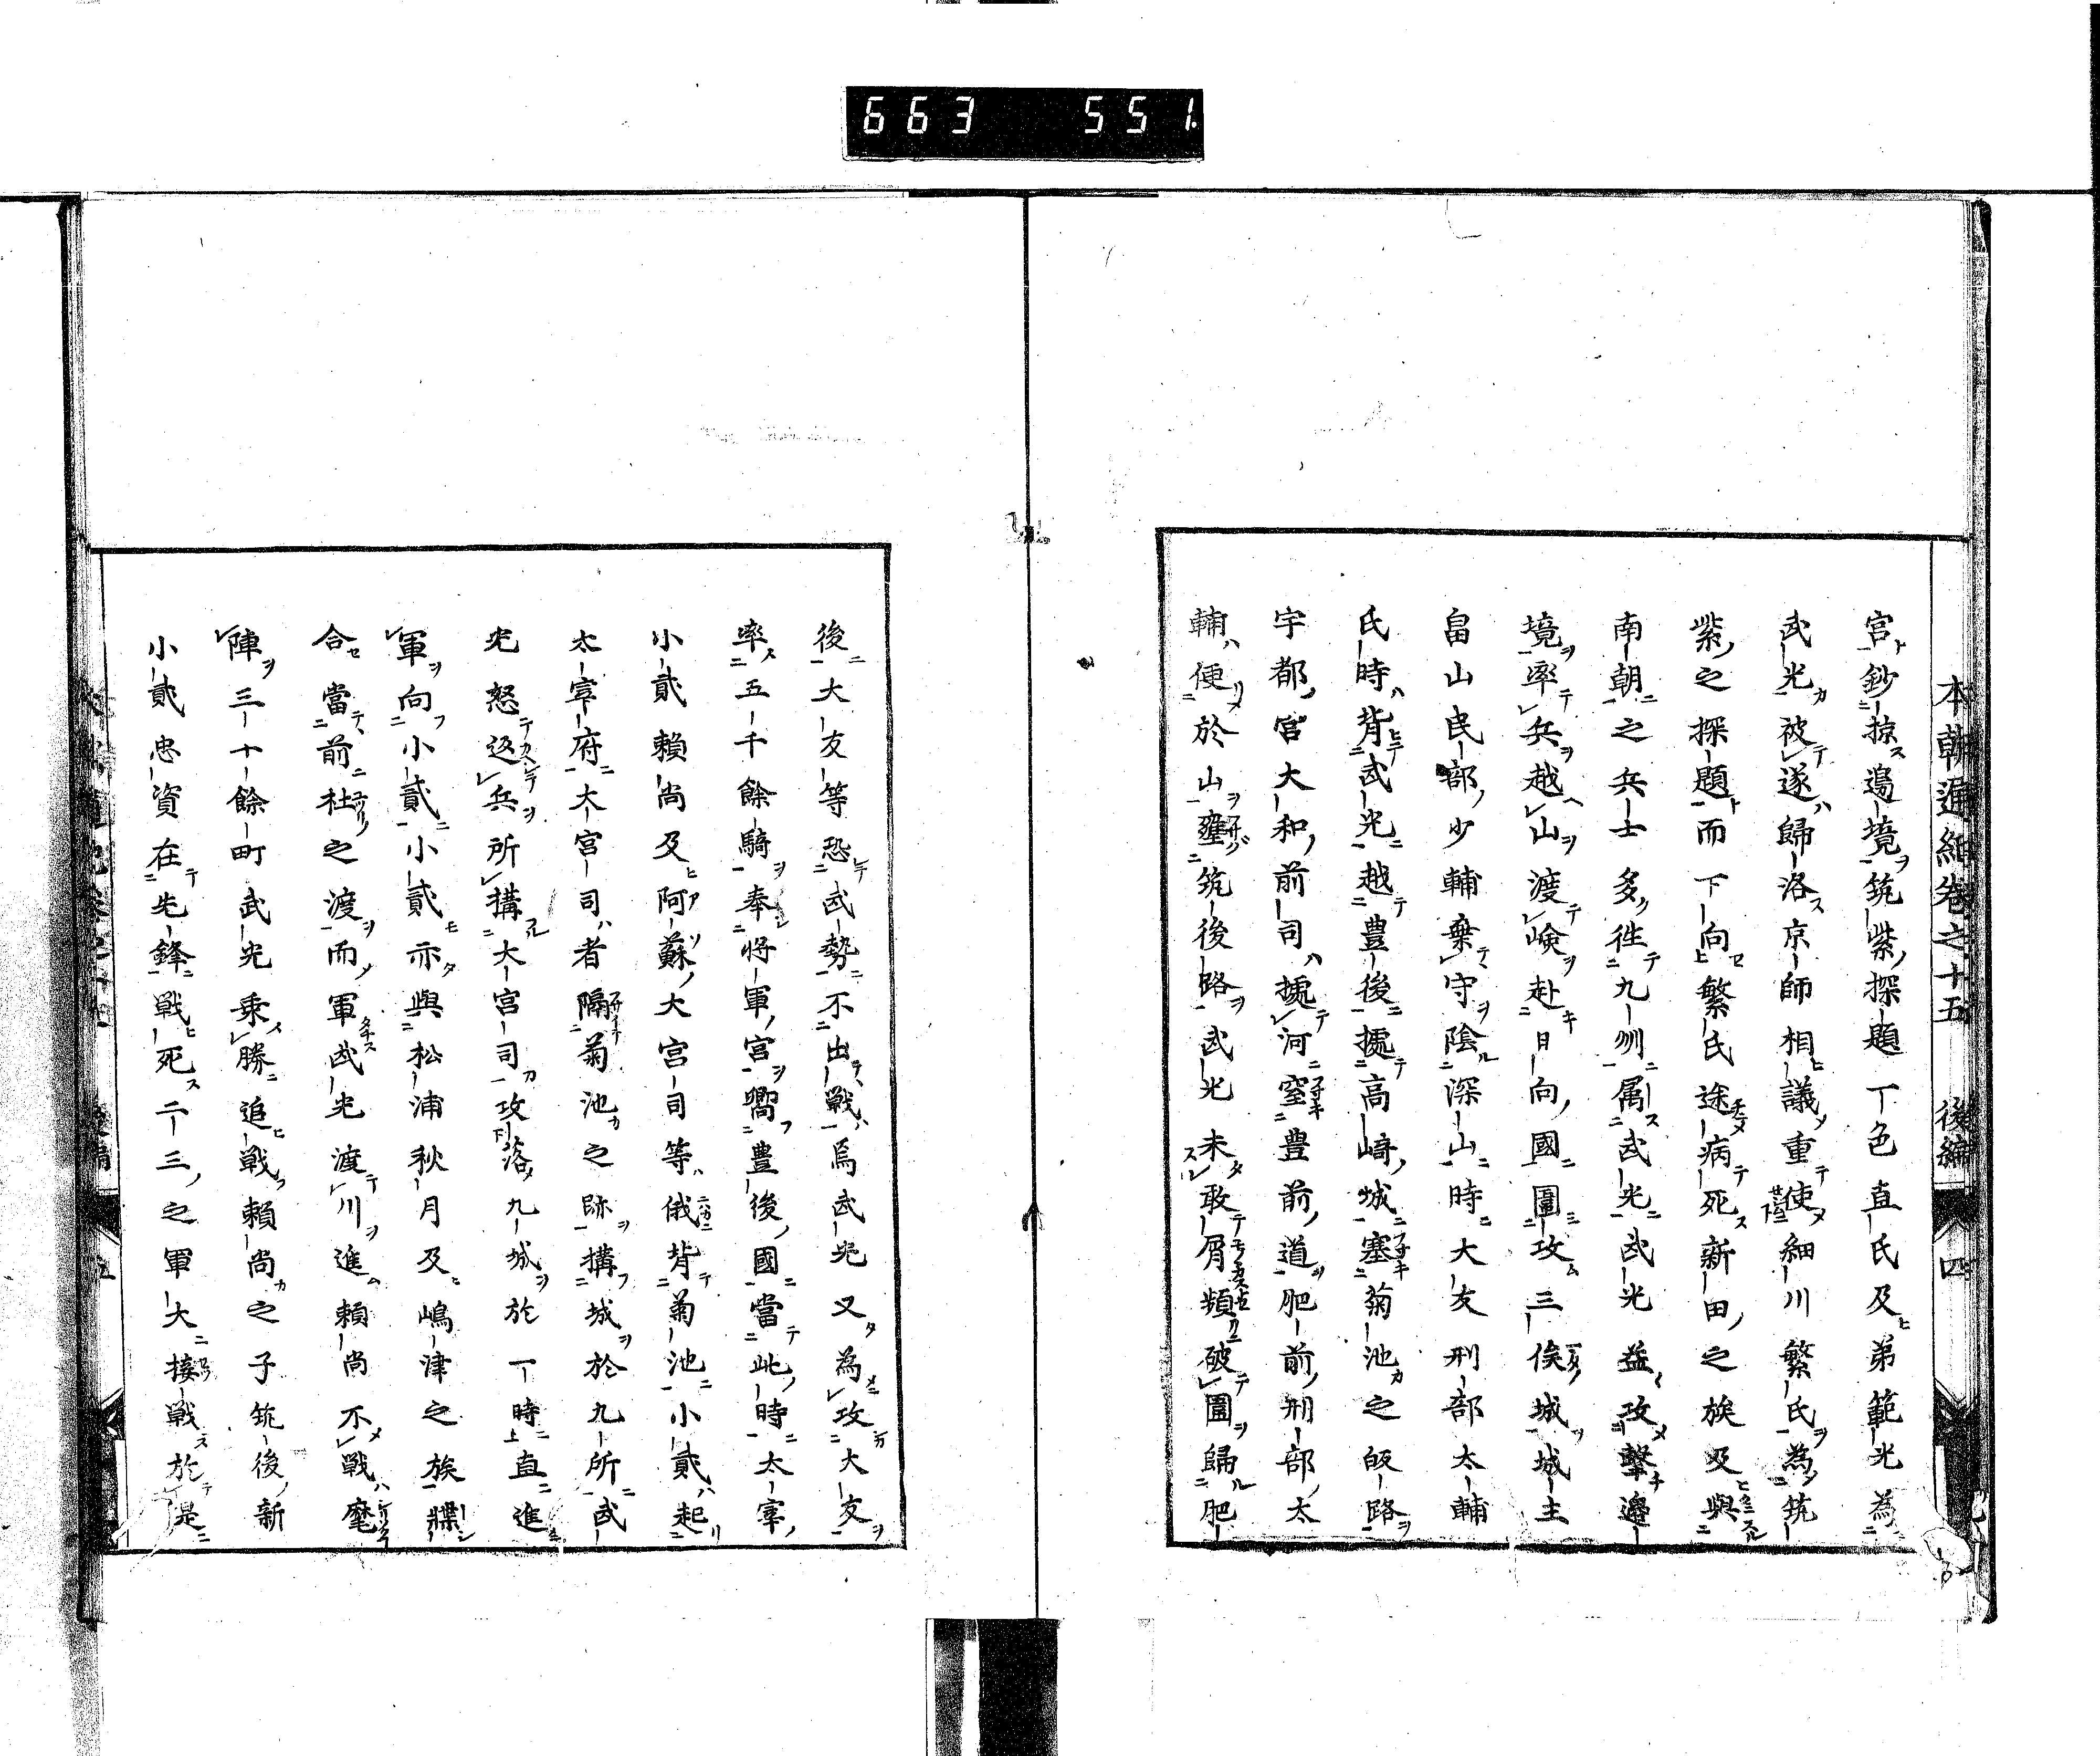 663 551
本朝通紀卷之十五 後編 四
宮鈔掠邉境筑紫探題一色直氏及弟範光為
武光被遂歸洛京師相議重使細川繁氏為筑
紫之探題而下向繁氏途病死新田之族及與
南朝之兵士多徃九刕属武光武光益攻撃邉
境率兵越山渡嶮赴日向國圍攻三俣城城主
畠山民部少輔棄守陰深山時大友刑部太輔
氏時背武光越豊後據高﨑城塞菊池之皈路
宇都宮大和前司據河窒豊前道肥前刑部太
輔便於山壅筑後路武光未敢屑頻破圍歸肥
後大友等恐武勢不出戰焉武光又為攻大友
率五千餘騎奉將軍宮嚮豊後國當此時太宰
小貳賴尚及阿蘇大宮司等俄背菊池小貳起
太宰府大宮司者隔菊池之跡搆城於九所武
光怒返兵所搆大宮司攻落九城於一時直進
軍向小貳小貳亦與松浦秋月及嶋津之族牒
合當前杜之渡而軍武光渡川進賴尚不戰麾
陣三十餘町武光乗勝追戰賴尚之子筑後新
小貳忠資在先鋒戰死二三之軍大接戰於是